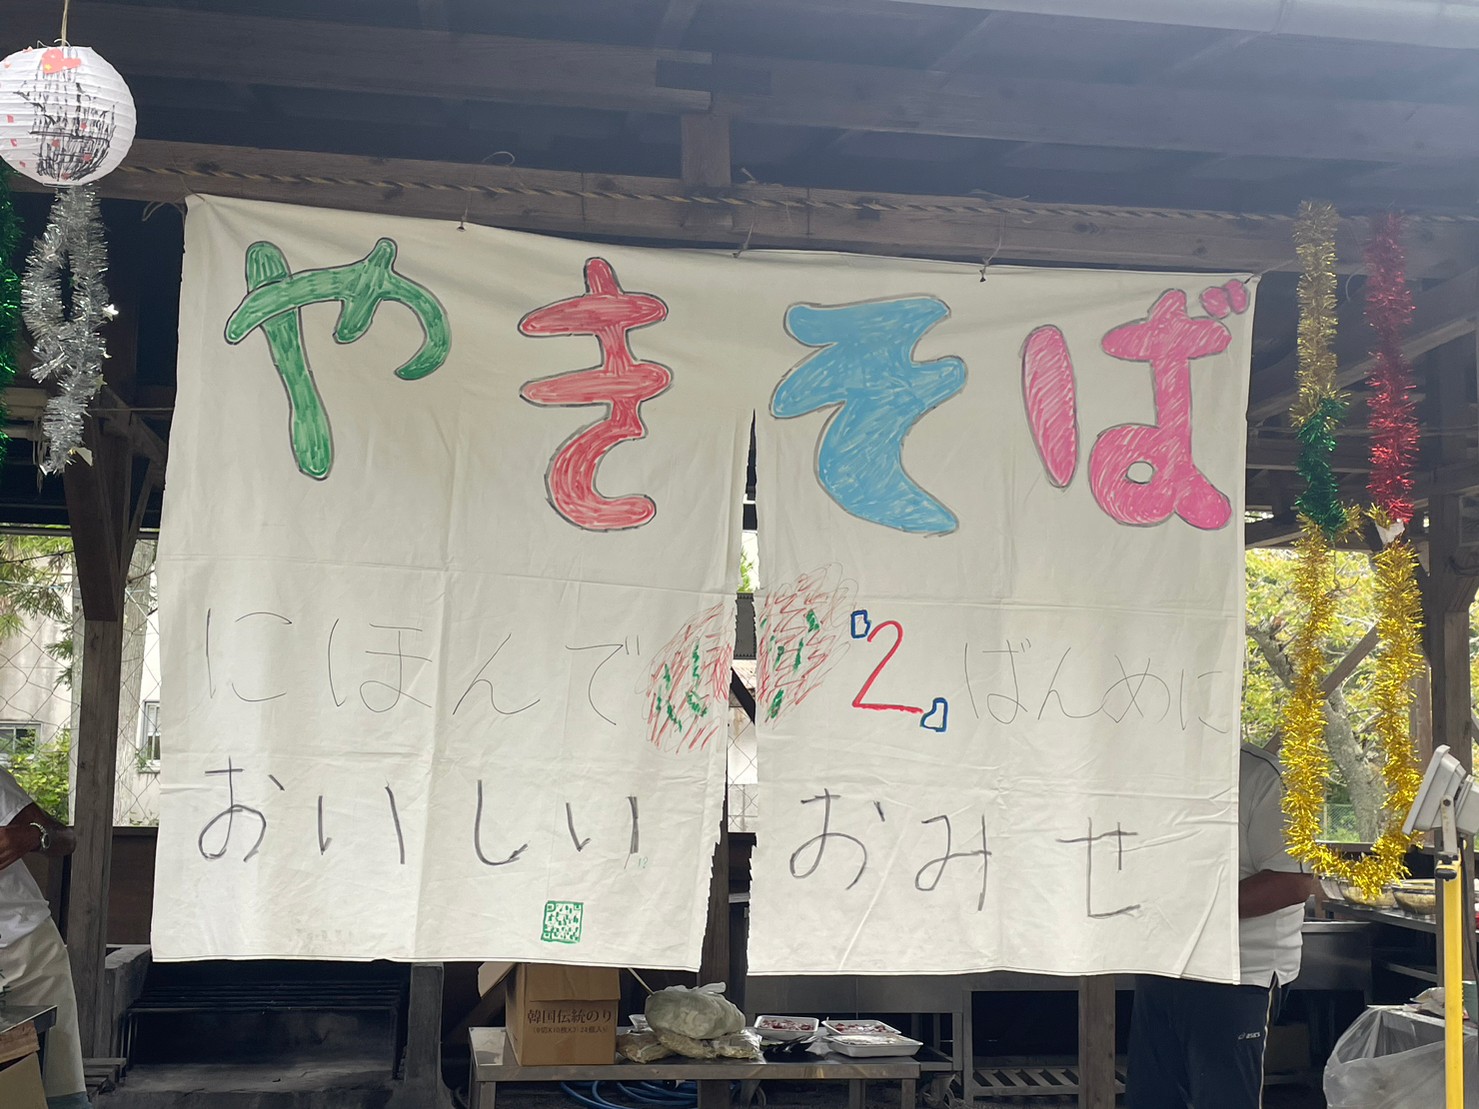 やきそば
にほんで 2ばんめに
おいしい おみせ
韓国伝統のり
asics